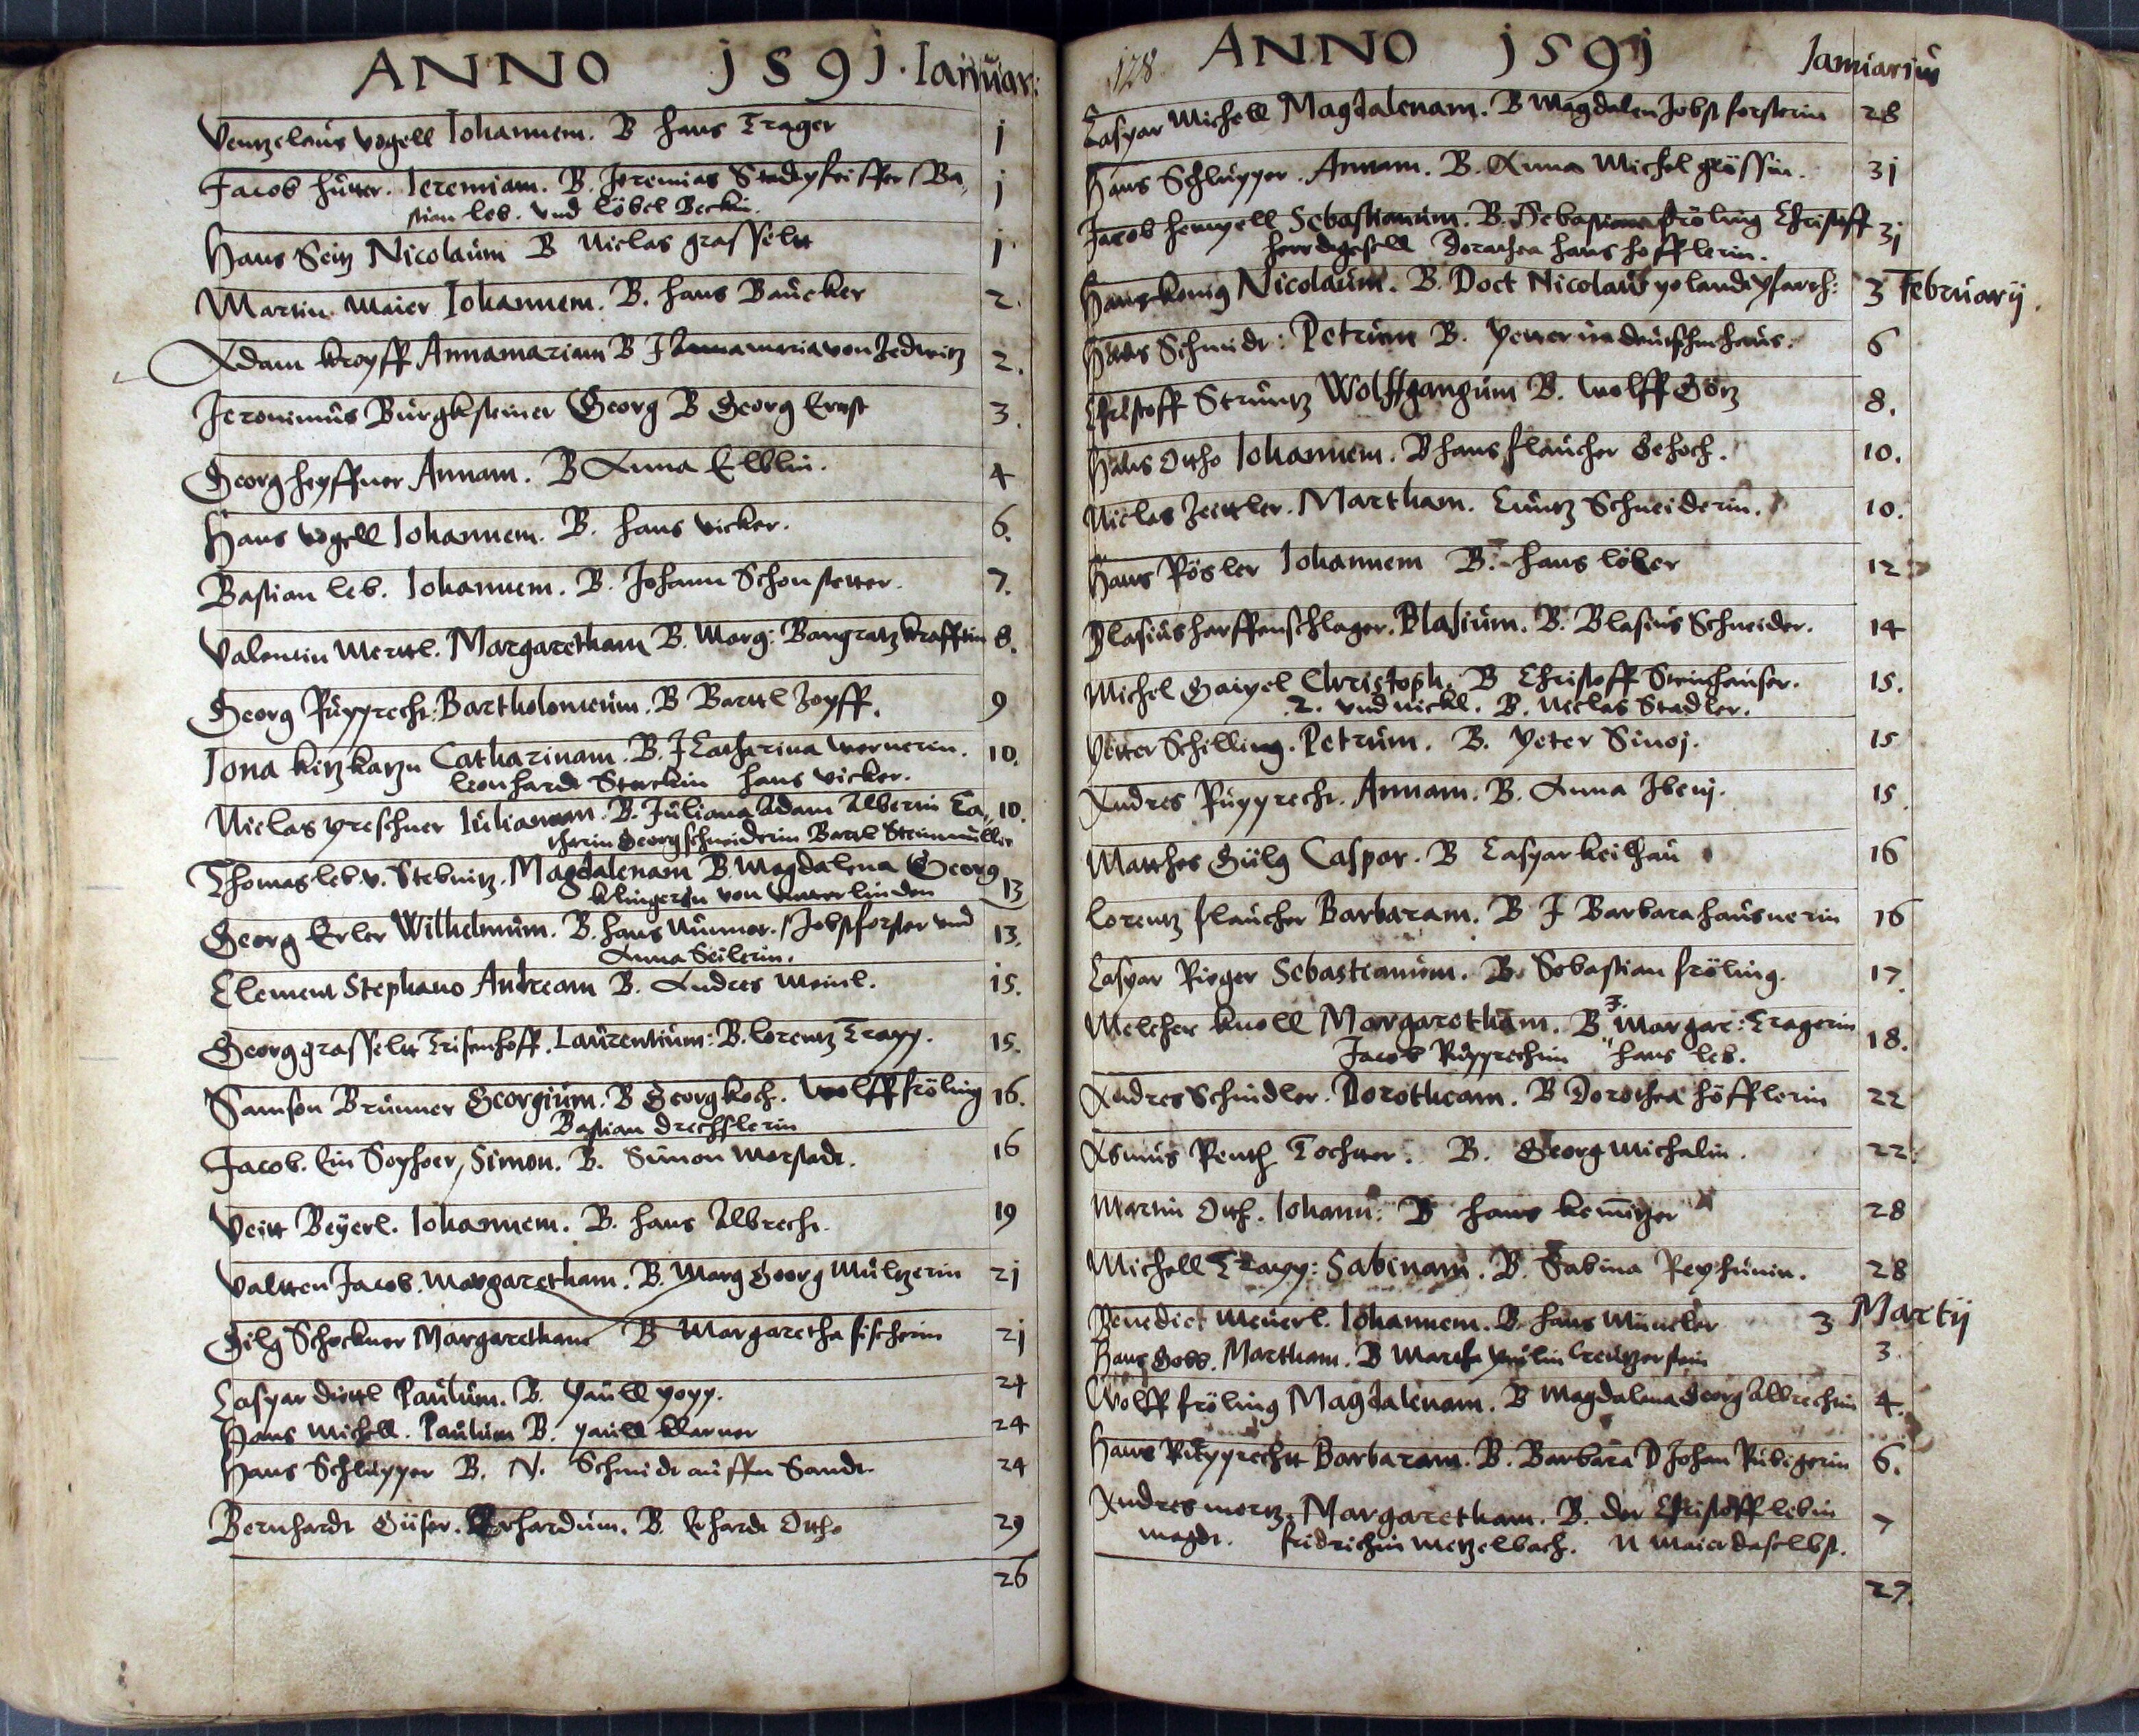 ANNO 1591. Ianuar:
Ventzelaus Vogell Iohannem. B Hans Trager 1
Jacob Hütter. Ieremiam. B. Jeremias Stadtpfeiffer / Ba, 1
stian Leb. und Löbel Beckin.
Hans Seitz Nicolaum B Niclas Grasseltt 1
Martin Maier Iohannem. B. Hans Baucker 2.
Adam Kropff Annamariam B J Annamaria von Zedwitz 2.
Jeronimus Burgksteiner Georg B Georg Ernst 3.
Georg Heyffner Annam. B Anna Elblin. 4
Hans Vogell Iohannem. B. Hans Vicker. 6.
Bastian Leb. Iohannem. B. Johann Schonstetter. 7.
Valentin Merttl. Margaretham B. Marg: Bangratz Krafftin 8.
Georg Rupprecht. Bartholomeum. B Barttl Zopff. 9
Iona Kitzkatzn Catharinam. B. J Catharina Wernerin. 10.
Leonhardt Starckin Hans Vicker.
Niclas Preschner Iulianam. B. Juliana Adam Alberin Ca, 10.
tharin Georg Schneiderin Bartl Steinmüller
Thomas Leb v. Stebnitz. Magdalenam B. Magdalena Georg 13
Klingerin von Unterlinden
Georg Erler Wilhelmum. B. Hans Numer. / Jobst Forster und 13.
Anna Seilerin.
Clement Stephano Andream B. Andres Meinl. 15.
Georg Grasseltt Trisenhoff. Laurentium: B. Lorentz Trapp. 15.
Samson Brunner Georgium. B Georg Koch. Wolff Fröling 16.
Bastian Drechslerin
Jacob. Ein Soyhoer, Simon. B. Simon Marstadt. 16
Veitt Beyerl. Iohannem. B. Hans Albrecht. 19
Valtten Jacob. Margaretham. B. Marg Georg Multzerin 21
Gilg Schockner Margaretham B Margaretha Fischerin 21
Caspar Diettl Paulum. B. Paull Popp. 24
Hans Michell. Paulum B. Paull Klarner 24
Hans Schlupper B. N. Schmidt auffn Sandt. 24
Bernhardt Güser. Erhardum. B. Erhardt Ottho 29
26
128 ANNO 1591 Ianuarius
Caspar Michell Magdalenam. B Magdalen Jobst Forsterin 28
Hans Schlupper. Annam. B. Anna Michel Grössin. 31
Jacob Hempell Sebastianum. B. Sebastian Fröling Christoff 31
Herrdegesell Dorothea Hans Hofflerin.
Hans Konig Nicolaum. B. Doct Nicolaus Polandt Pfarrh: 3 February.
Hans Schmidt: Petrum B. Petter im Deutschenhaus. 6
Christoff Struntz Wolffgangum B. Wolff Götz 8.
Hans Ottho Iohannem. B Hans Flaucher Gehoch. 10.
Niclas Zeittler. Martham. Cuntz Schneiderin. 10.
Hans Rösler Iohannem B. Hans Löker 12
Blasius Harffenschlager. Blasium. B. Blasius Schneider. 14
Michel Gaipel Christoph. B Christoff Steinhauser. 15.
2. und Nickl. B. Niclas Stadler.
Petter Schilling. Petrum. B. Peter Sinoj. 15
Andres Rupprecht. Annam. B. Anna Ibenj. 15.
Matthes Gülg Caspar. B Caspar Keilhau 16
Lorentz Flaucher Barbaram. B J Barbara Hausnerin 16
Caspar Rieger Sebastianum. B. Sebastian Fröling. 17.
Melcher Knoll Margaretham. B J. Margar: Tragerin 18.
Jacob Rupprechtin Hans Leb.
Andres Schindler. Dorotheam. B Dorothea Höfflerin 22
Asmus Reuth Tochtter. B. Georg Michalin. 22.
Martin Otth. Iohann: B Hans Kemitzer 28
Michell Trapp: Sabinam. B. Sabina Rephunin. 28
Benedict Meuerl. Iohannem. B. Hans Müncker 3 Martij
Hans Goss. Martham. B Martha Creutzerstein 3.
Wolff Fröling Magdalenam. B Magdalena Georg Albrechtin 4.
Hans Rupprechtt Barbaram. B. Barbara D Johan Rubigerin 6.
Andres Mertz. Margaretham. B. der Christoff Lebin 7
magdt. Fridrichin Metzelbach. N Maier daselbst.
27.